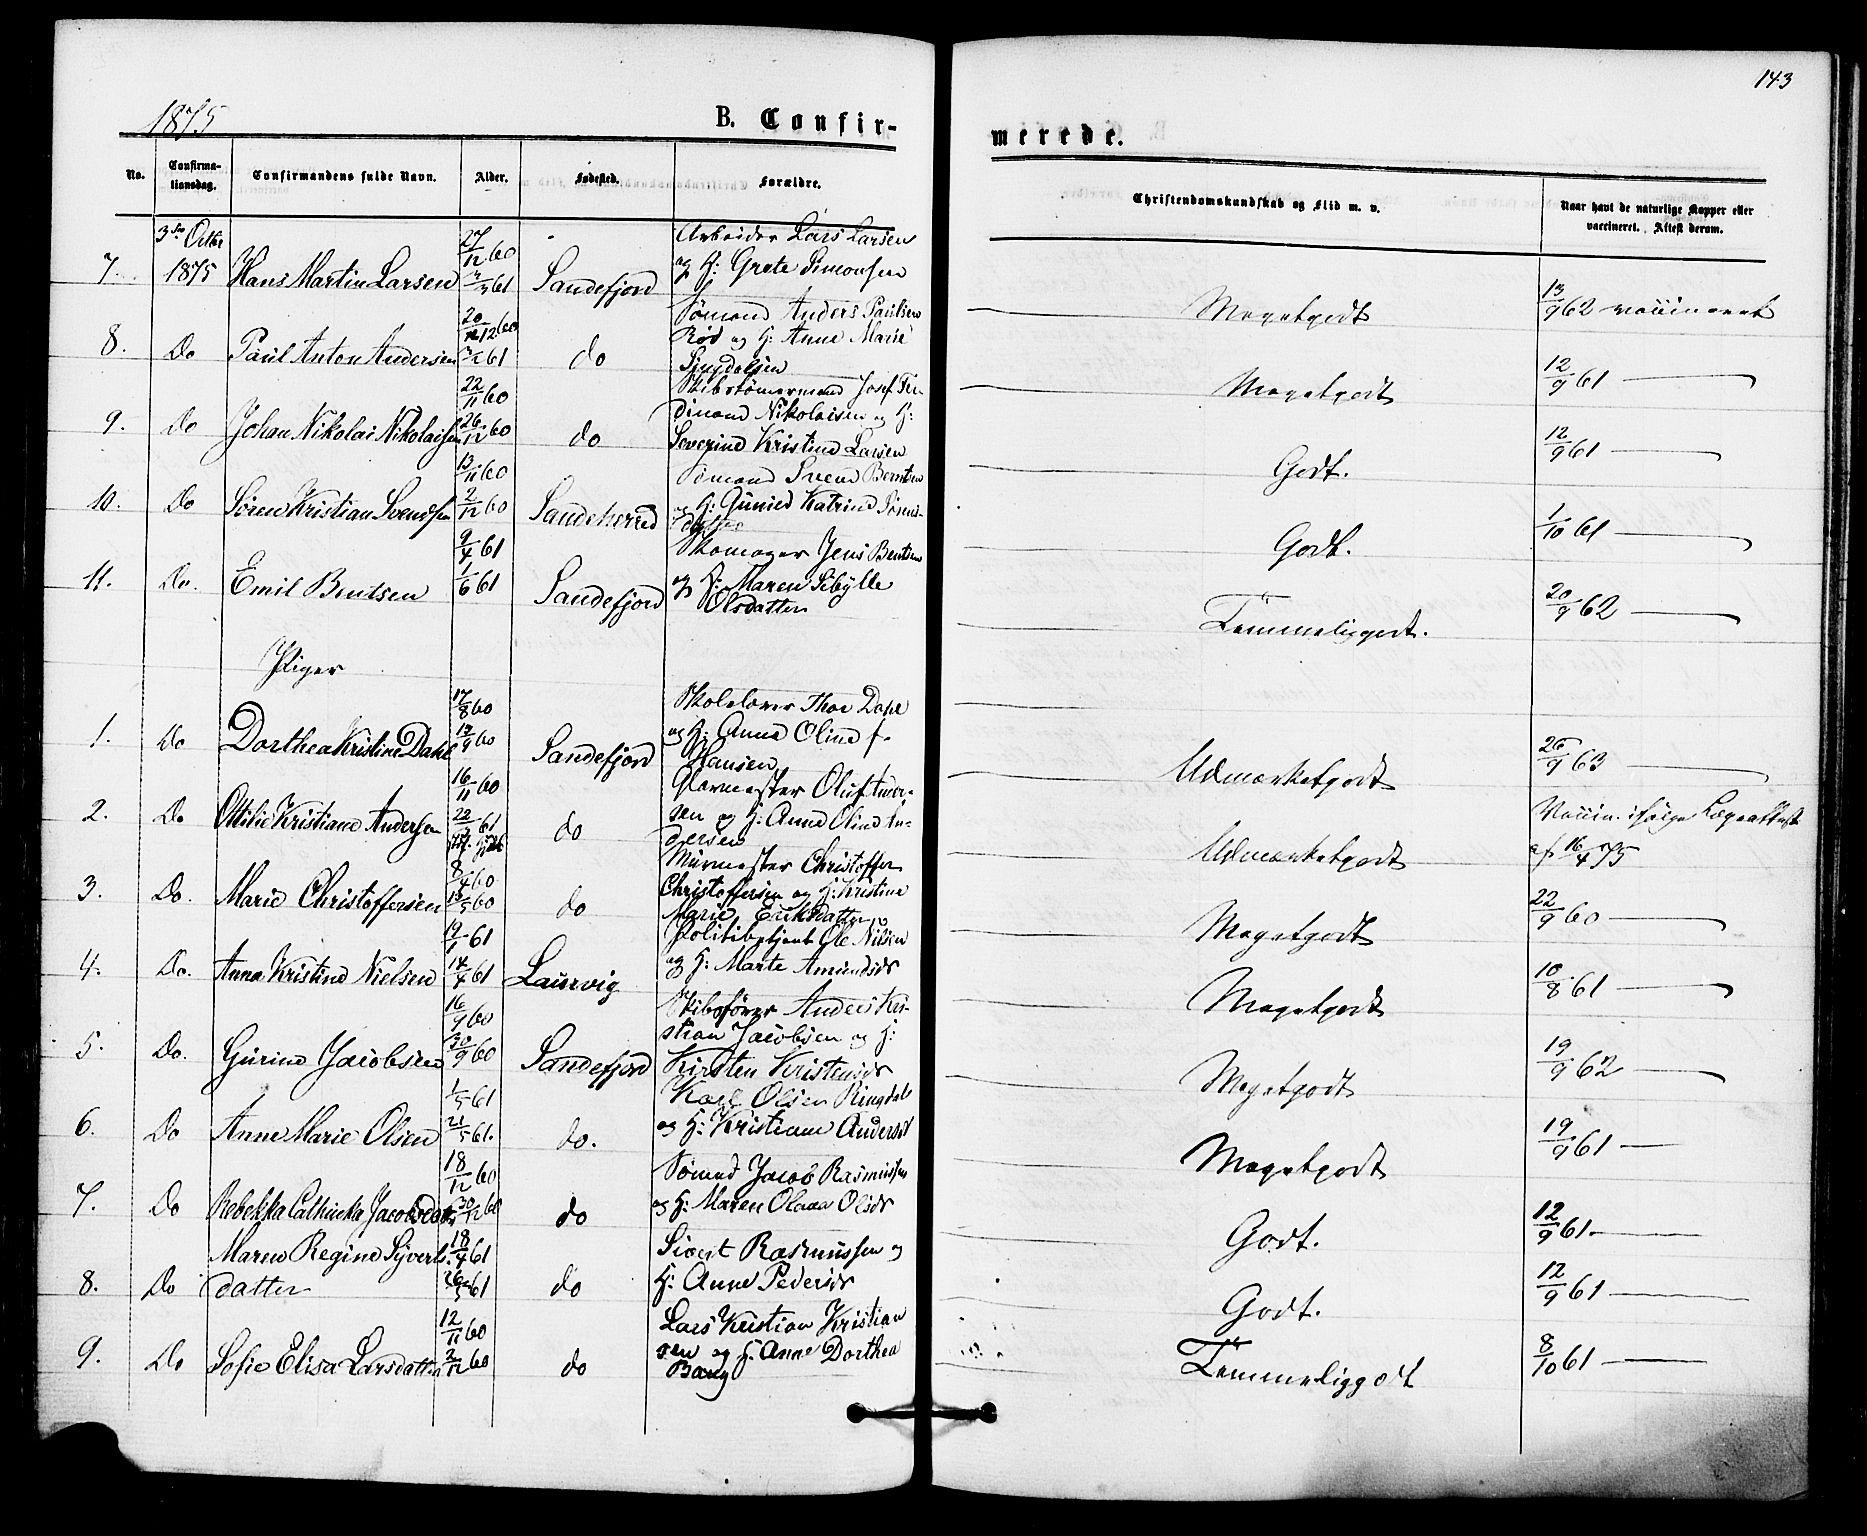 1875
B. Confir-
No.
Confirma-
tionsdag.
Confirmandens fulde Navn.
Alder.
Fødested.
Forældre.
3die Octbr
27/12 60
Arbeider Lars Larsen
7. 1875 Hans Martin Larsen 61 Sandefjord og H: Grete Simonsen
20/12 60
Sømand Anders Paulsen
Rød og H: Anne Marie
8. Do Paul Anton Andersen 61 do
22/11 60
Skibstømermand Josef Fer-
dinand Nikolaisen og H:
9. Do Johan Nikolai Nikolaisen 26/12 60 do Severine Kristine Larsen
13/11 60
Sømand Svend Berntsen
10. Do Sören Kristian Svendsen 2/12 60 Sandeherred og H: Gunild Katrine Sörens-
datter
9/4 61
Skomager Jens Bentsen
11. Do. Emil Bentsen 1/6 61 Sandefjord og H: Maren Sibylle
Olsdatter
Piger
17/8 60
Skolelærer Thor Dahl
1. Do Dorthea Kristine Dahl 13/9 60 Sandefjord og H: Anne Oline f.
Hansen
16/11 60
Glarmester Oluf Ander-
2. Do Ottilie Kristiane Andersen 22/ 61 do sen og H: Anne Oline An-
dersen
8/4 60
Murmester Christoffer
3. Do. Marie Christoffersen 13/5 60 do Christoffersen og H: Kristine
Marie Eriksdatter
19/1 61
Politibetjent Ole Nilsen
4. Do. Anna Kristine Nielsen 14/4 61 Laurvig og H: Marte Amundsdr
16/9 60
Skibsfører Anders Kri-
stian Jacobsen og H:
5. Do. Gurine Jacobsen 30/9 60 Sandefjord Kirsten Kristensdr
1/5 61
Karl Olsen Ringdal
6. Do Anne Marie Olsen 21/5 61. do. og H: Kristiane Andersdr
18/12 60
Sømand Jacob Rasmussen
7. Do Rebekka Cathinka Jacobsdatter 30/12 60 do og H: Maren Olava Olsdr
Maren Regine Syverts- 18/4 61 Sivert Rasmussen og
8. Do datter 26/5 61 do H: Anne Pedersdr
12/11 60
Lars Kristian Kristian
9. Do Sofie Elisa Larsdatter 2/12 60 do sen og H: Anne Dorthea
Bang
143
merede.
Christendomskundskab og Flid m. v.
Naar havt de naturlige Kopper eller
vaccineret. Attest derom.
Megetgodt 13/9 62 vaccineret
Megetgodt 12/9 61
Godt. 12/9 61
Godt. 1/10 61
Temmeliggodt. 20/9 62
Udmærketgodt 26/9 63
Vaccin. ifølge Lægeattest
Udmærketgodt af 16/4 75
Megetgodt 22/9 60
Megetgodt 10/8 61
Megetgodt 19/9 62
Megetgodt 19/9 61
Godt. 12/9 61
Godt. 12/9 61
Temmeliggodt 8/10 61